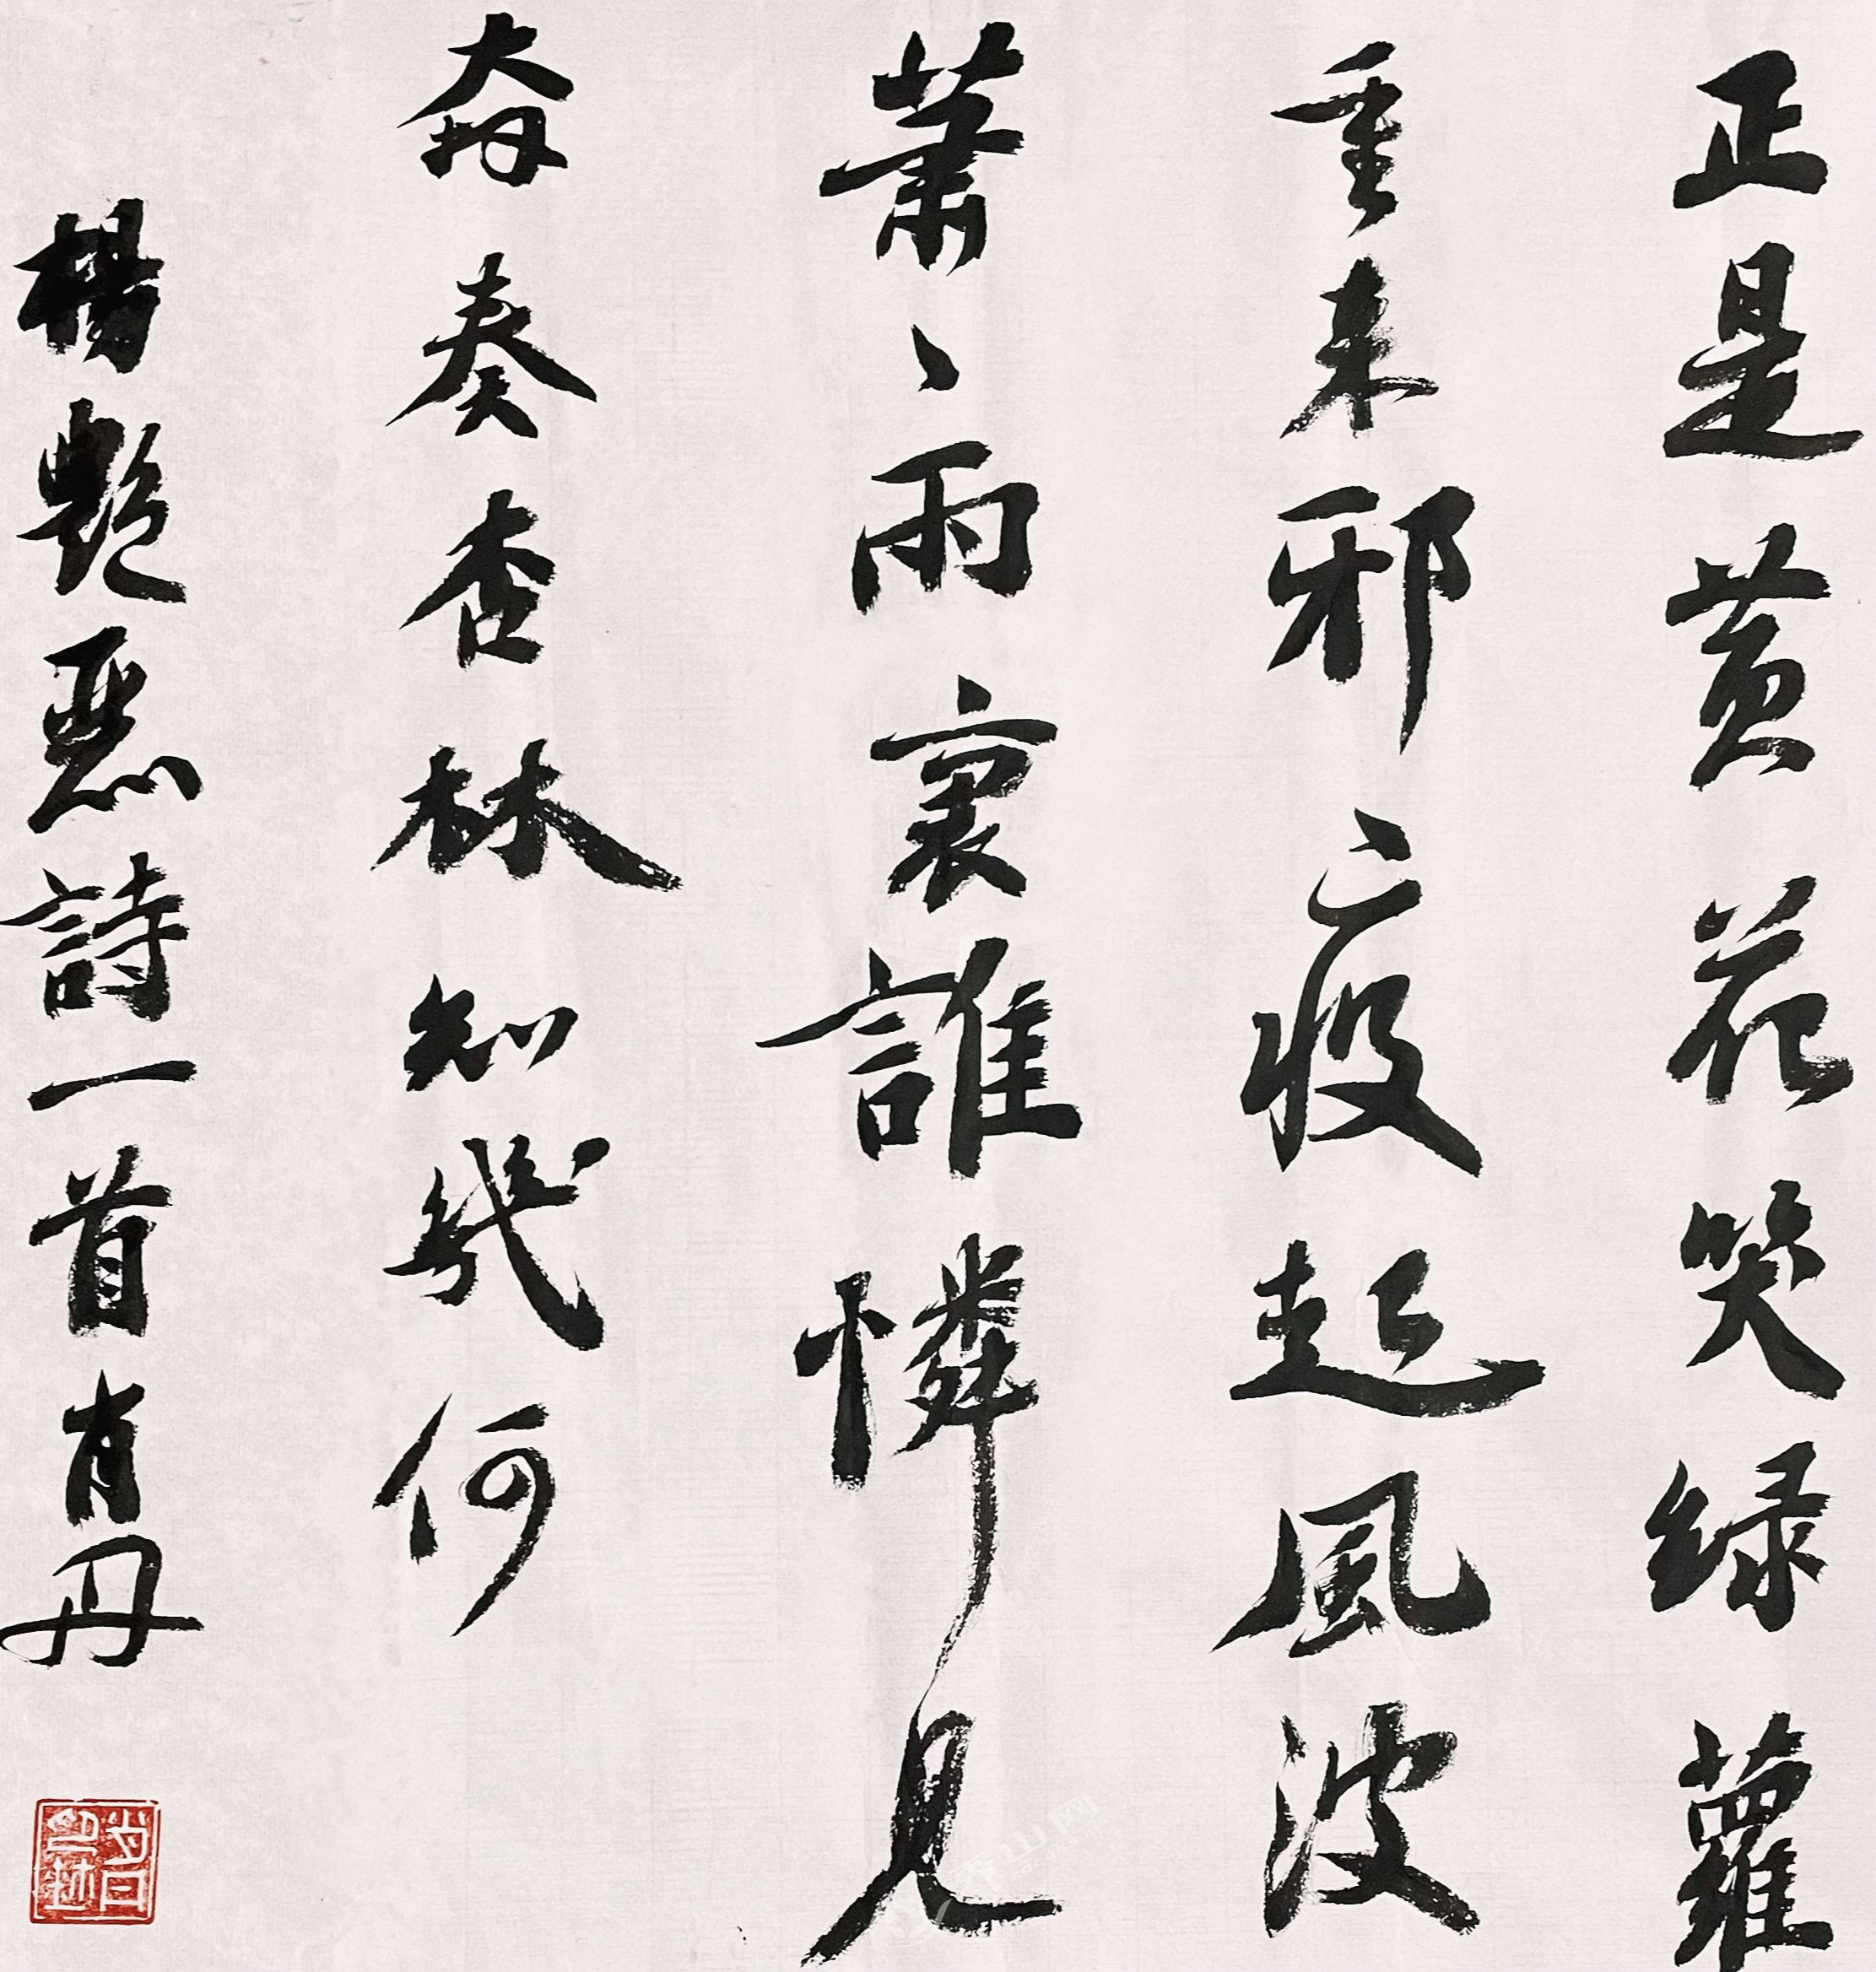 正是黄花笑绿蘿
重来邪疫起風波
萧々雨裏誰憐見
奋奏杏林知幾何
楊艷惡詩一首肖丹